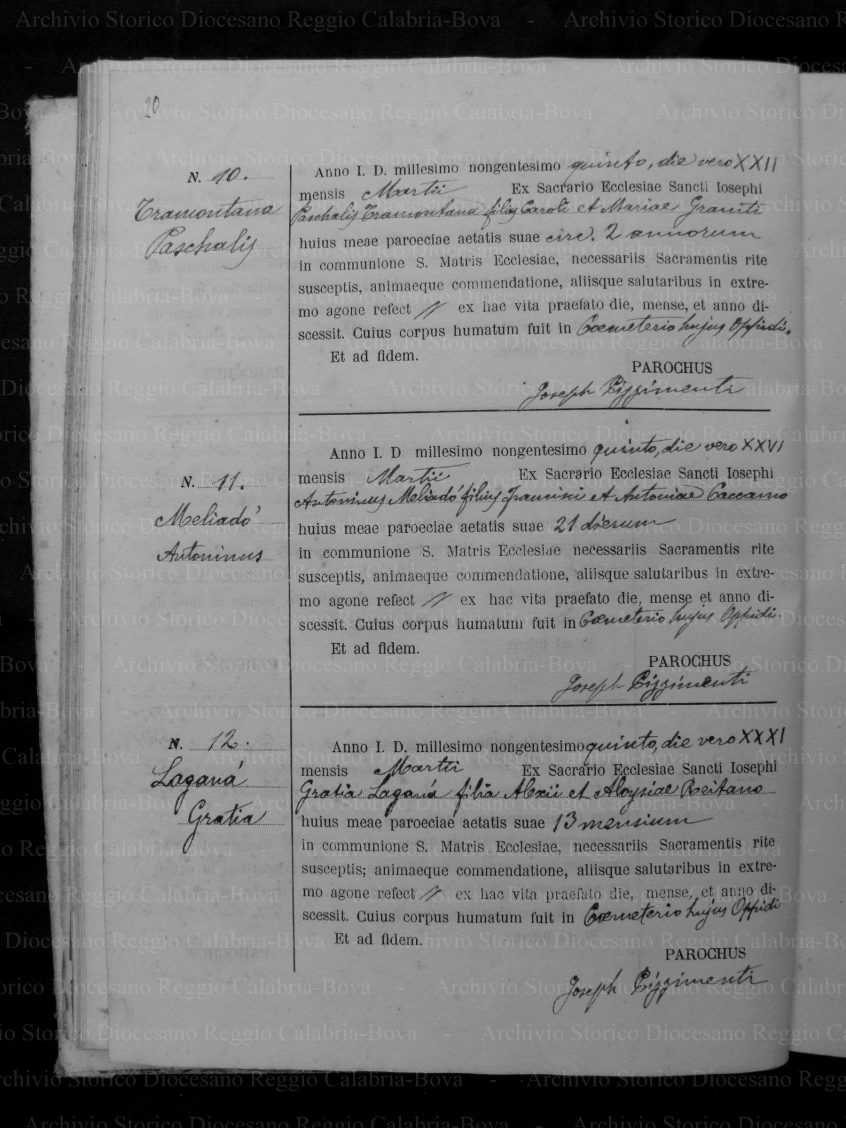 20
N. 10.
Tramontana
Paschalis
Anno I. D. millesimo nongentesimo quinto, die vero XXII
mensis Martii Ex Sacrario Ecclesiae Sancti Iosephi
Paschalis Tramontana filius Caroli et Mariae
huius meae paroeciae aetatis suae circ. 2 annorum
in communione S. Matris Ecclesiae, necessariis Sacramentis rite
susceptis, animaeque commendatione, aliisque salutaribus in extre-
mo agone refect // ex hac vita praefato die, mense, et anno di-
scessit. Cuius corpus humatum fuit in Coemeterio hujus Oppidi.
Et ad fidem.
PAROCHUS
Joseph Pizzimenti
N. 11.
Meliadó
Antoninus
Anno I. D millesimo nongentesimo quinto, die vero XXVI
mensis Martii Ex Sacrario Ecclesiae Sancti Iosephi
Antoninus Meliadó filius Francisci et Antoniae Caccamo
huius meae paroeciae aetatis suae 21 dierum
in communione S. Matris Ecclesiae necessariis Sacramentis rite
susceptis, animaeque commendatione, aliisque salutaribus in extre-
mo agone refect // ex hac vita praefato die, mense et anno di-
scessit. Cuius corpus humatum fuit in Coemeterio hujus Oppidi.
Et ad fidem.
PAROCHUS
Joseph Pizzimenti
N. 12.
Laganá
Gratia
Anno I. D. millesimo nongentesimo quinto, die vero XXXI
mensis Martii Ex Sacrario Ecclesiae Sancti Iosephi
Gratia Laganá filia Alexii et Aloysiae Reitano
huius meae paroeciae aetatis suae 13 mensium
in communione S. Matris Ecclesiae, necessariis Sacramentis rite
susceptis; animaeque commendatione, aliisque salutaribus in extre-
mo agone refect // ex hac vita praefato die, mense, et anno di-
scessit. Cuius corpus humatum fuit in Coemeterio hujus Oppidi
Et ad fidem.
PAROCHUS
Joseph Pizzimenti